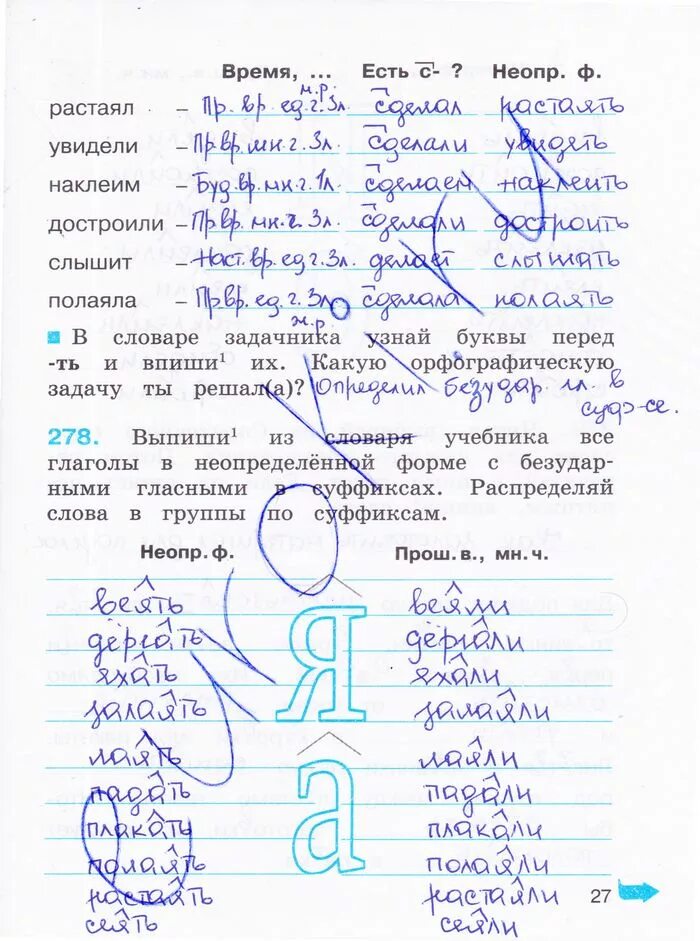 Время, ... Есть с- ? Неопр. ф.
м.р
растаял – Пр. вр. ед. г. 3л. сделал растаять
увидели – Пр. вр. мн. г. 3л. сделали увидеть
наклеим – Буд. вр. мн. г. 1л. сделаем наклеить
достроили – Пр. вр. мн. г. 3л. сделали достроить
слышит – Наст. вр. ед. г. 3л. делает слышать
полаяла – Пр. вр. ед. г. 3л. сделала полаять
ж.р
В словаре задачника узнай буквы перед
-ть и впиши¹ их. Какую орфографическую
задачу ты решал(а)? Определил безудар. гл. в
суфф-се.
278. Выпиши¹ из словаря учебника все
глаголы в неопределённой форме с безудар-
ными гласными в суффиксах. Распределяй
слова в группы по суффиксам.
Неопр. ф. Прош. в., мн. ч.
веять веяли
дёргать дёргали
яхать яхали
залаять залаяли
я
лаять лаяли
падать падали
плакать плакали
а
полаять полаяли
растаять растаяли
сеять сеяли
27